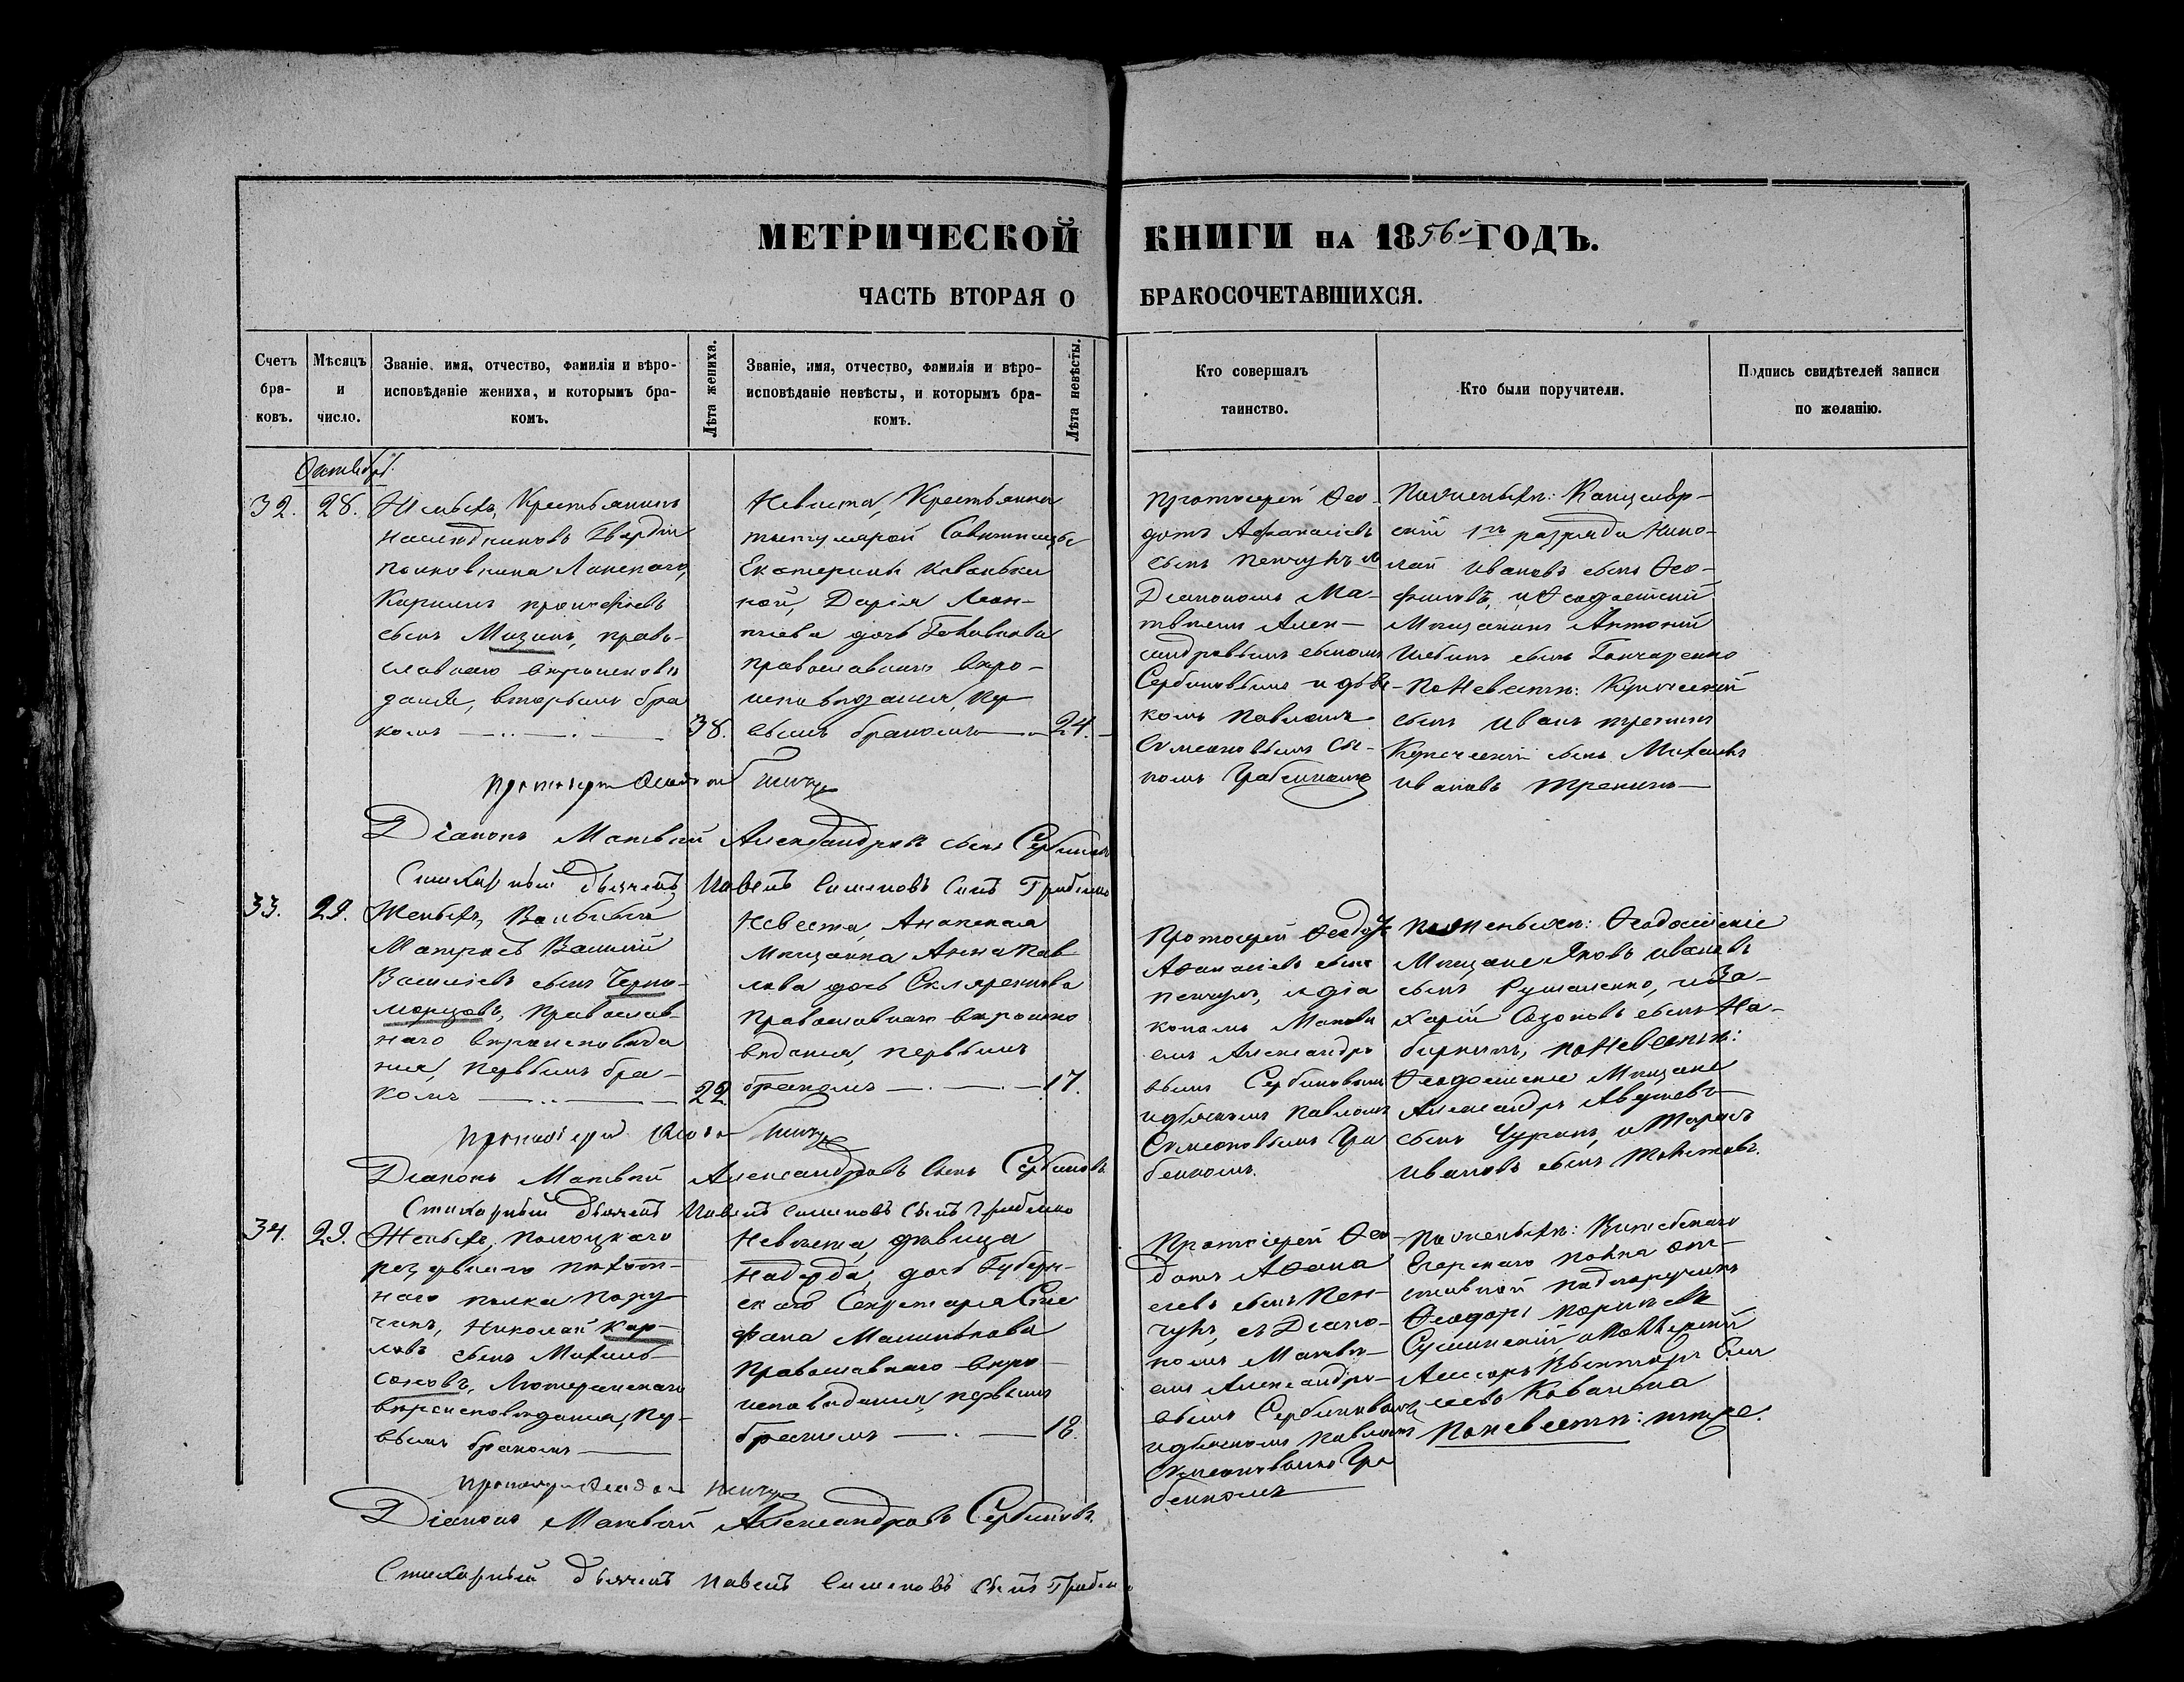 МЕТРИЧЕСКОЙ КНИГИ НА 1856й ГОДЪ.
ЧАСТЬ ВТОРАЯ О БРАКОСОЧЕТАВШИХСЯ.
Счетъ бра-ковъ.
Мѣсяцъ и число.
Званіе, имя, отчество, фамилія и вѣро-
исповѣданіе жениха, и которымъ бра-
комъ.
Лѣта жениха.
Званіе, имя, отчество, фамилія и вѣро-
исповѣданіе невѣсты, и которымъ бра-
комъ.
Лѣта невѣсты.
Кто совершалъ
таинство.
Кто были поручители.
Подпись свидѣтелей записи
по желанію.
Октябрь
32.
28.
Женихъ, Крестьянинъ
наследниковъ Гвардіи
Полковника Ланскаго,
Кирилъ
сынъ Мизинъ, право-
славнаго вѣроисповѣ
данія, вторымъ бра
комъ
38.
Невеста, Крестьянка
титулярной Совѣтницы
Екатерины
Дарія Леон-
тіева дочь
православнаго вѣро-
исповѣданія, пер
вымъ бракомъ
24.
Протоіерей Ѳео-
дотъ Афанасіевъ
сынъ Пенчукъ съ
Діакономъ Ма-
твѣемъ Алек-
сандровымъ сыномъ
Сербиновымъ и дья-
комъ Павломъ
Симеоновымъ сы-
номъ Грабенкомъ
По женихѣ: Канцеляр-
скій 1го разряда Нико-
лай Ивановъ сынъ Ѳео-
и Ѳеодосійскій
Мѣщанинъ Антоній
сынъ Гончаренко
По Невестѣ: Купеческій
сынъ Иванъ Тренинъ
Купеческій сынъ Михаилъ
Ивановъ Тренинъ
Протоіерей Ѳеодотъ Пенчукъ
Діаконъ Матвѣй Александровъ сынъ Сербиновъ
Стихарный дьячекъ Павелъ Сименовъ сынъ Грабенко
33.
29.
Женихъ,
Матросъ Василій
Василіевъ сынъ Черно-
морцовъ, Православ-
наго вѣроисповѣда
нія, первымъ бра-
комъ
22.
Невеста, Анапская
Мѣщанка Анна Пав-
лова дочь Скляренкова
Православнаго вѣроиспо
вѣданія, первымъ
бракомъ
17.
Протоіерей Ѳеодотъ
Афанасіевъ сынъ
Пенчукъ, съ діа
кономъ Матвѣ
емъ Александро
вымъ Сербиновымъ
и дьячкомъ Павломъ
Симеоновымъ Гра
бенкомъ.
По Женихѣ: Ѳеодосійскіе
Мѣщане Яковъ Ивановъ
сынъ и За-
харій Созоновъ сынъ На-
по Невестѣ:
Ѳеодосійскіе Мѣщане
Александръ
сынъ Чуринъ, и Тарасъ
Ивановъ сынъ
Протоіерей Ѳеодотъ Пенчукъ
Діаконъ Матвѣй Александровъ сынъ Сербиновъ
Стихарный дьячекъ Павелъ Сименовъ сынъ Грабенко
34.
29.
Женихъ, Полоцкаго
резервнаго пѣхот-
наго полка Пору-
чикъ, Николай Кар-
ловъ сынъ Михаиль-
соновъ, Лютеранскаго
вѣроисповѣданія, пер-
вымъ бракомъ
Невѣста, дѣвица
Надежда, дочь Губерн-
скаго Секретаря Сте
фана Машинкова
Православнаго вѣро-
исповѣданія, первымъ
бракомъ
18.
Протоіерей Ѳео-
дотъ Афана
сіевъ сынъ Пен-
чукъ, съ Діако-
номъ Матвѣ-
емъ Александро-
вымъ Сербиновымъ
и дьячкомъ Павломъ
Симеоновымъ Гра
бенкомъ
По женихѣ: Витебскаго
Егерскаго полка от-
ставной подпоручикъ
Ѳеодоръ
Сушинскій и Коллежскій
Ассесоръ Викторъ
сеевъ Кованька
По невестѣ: тѣ же.
Протоіерей Ѳеодотъ Пенчукъ
Діаконъ Матвѣй Александровъ Сербиновъ.
Стихарный дьячекъ Павелъ Сименовъ сынъ Грабенко